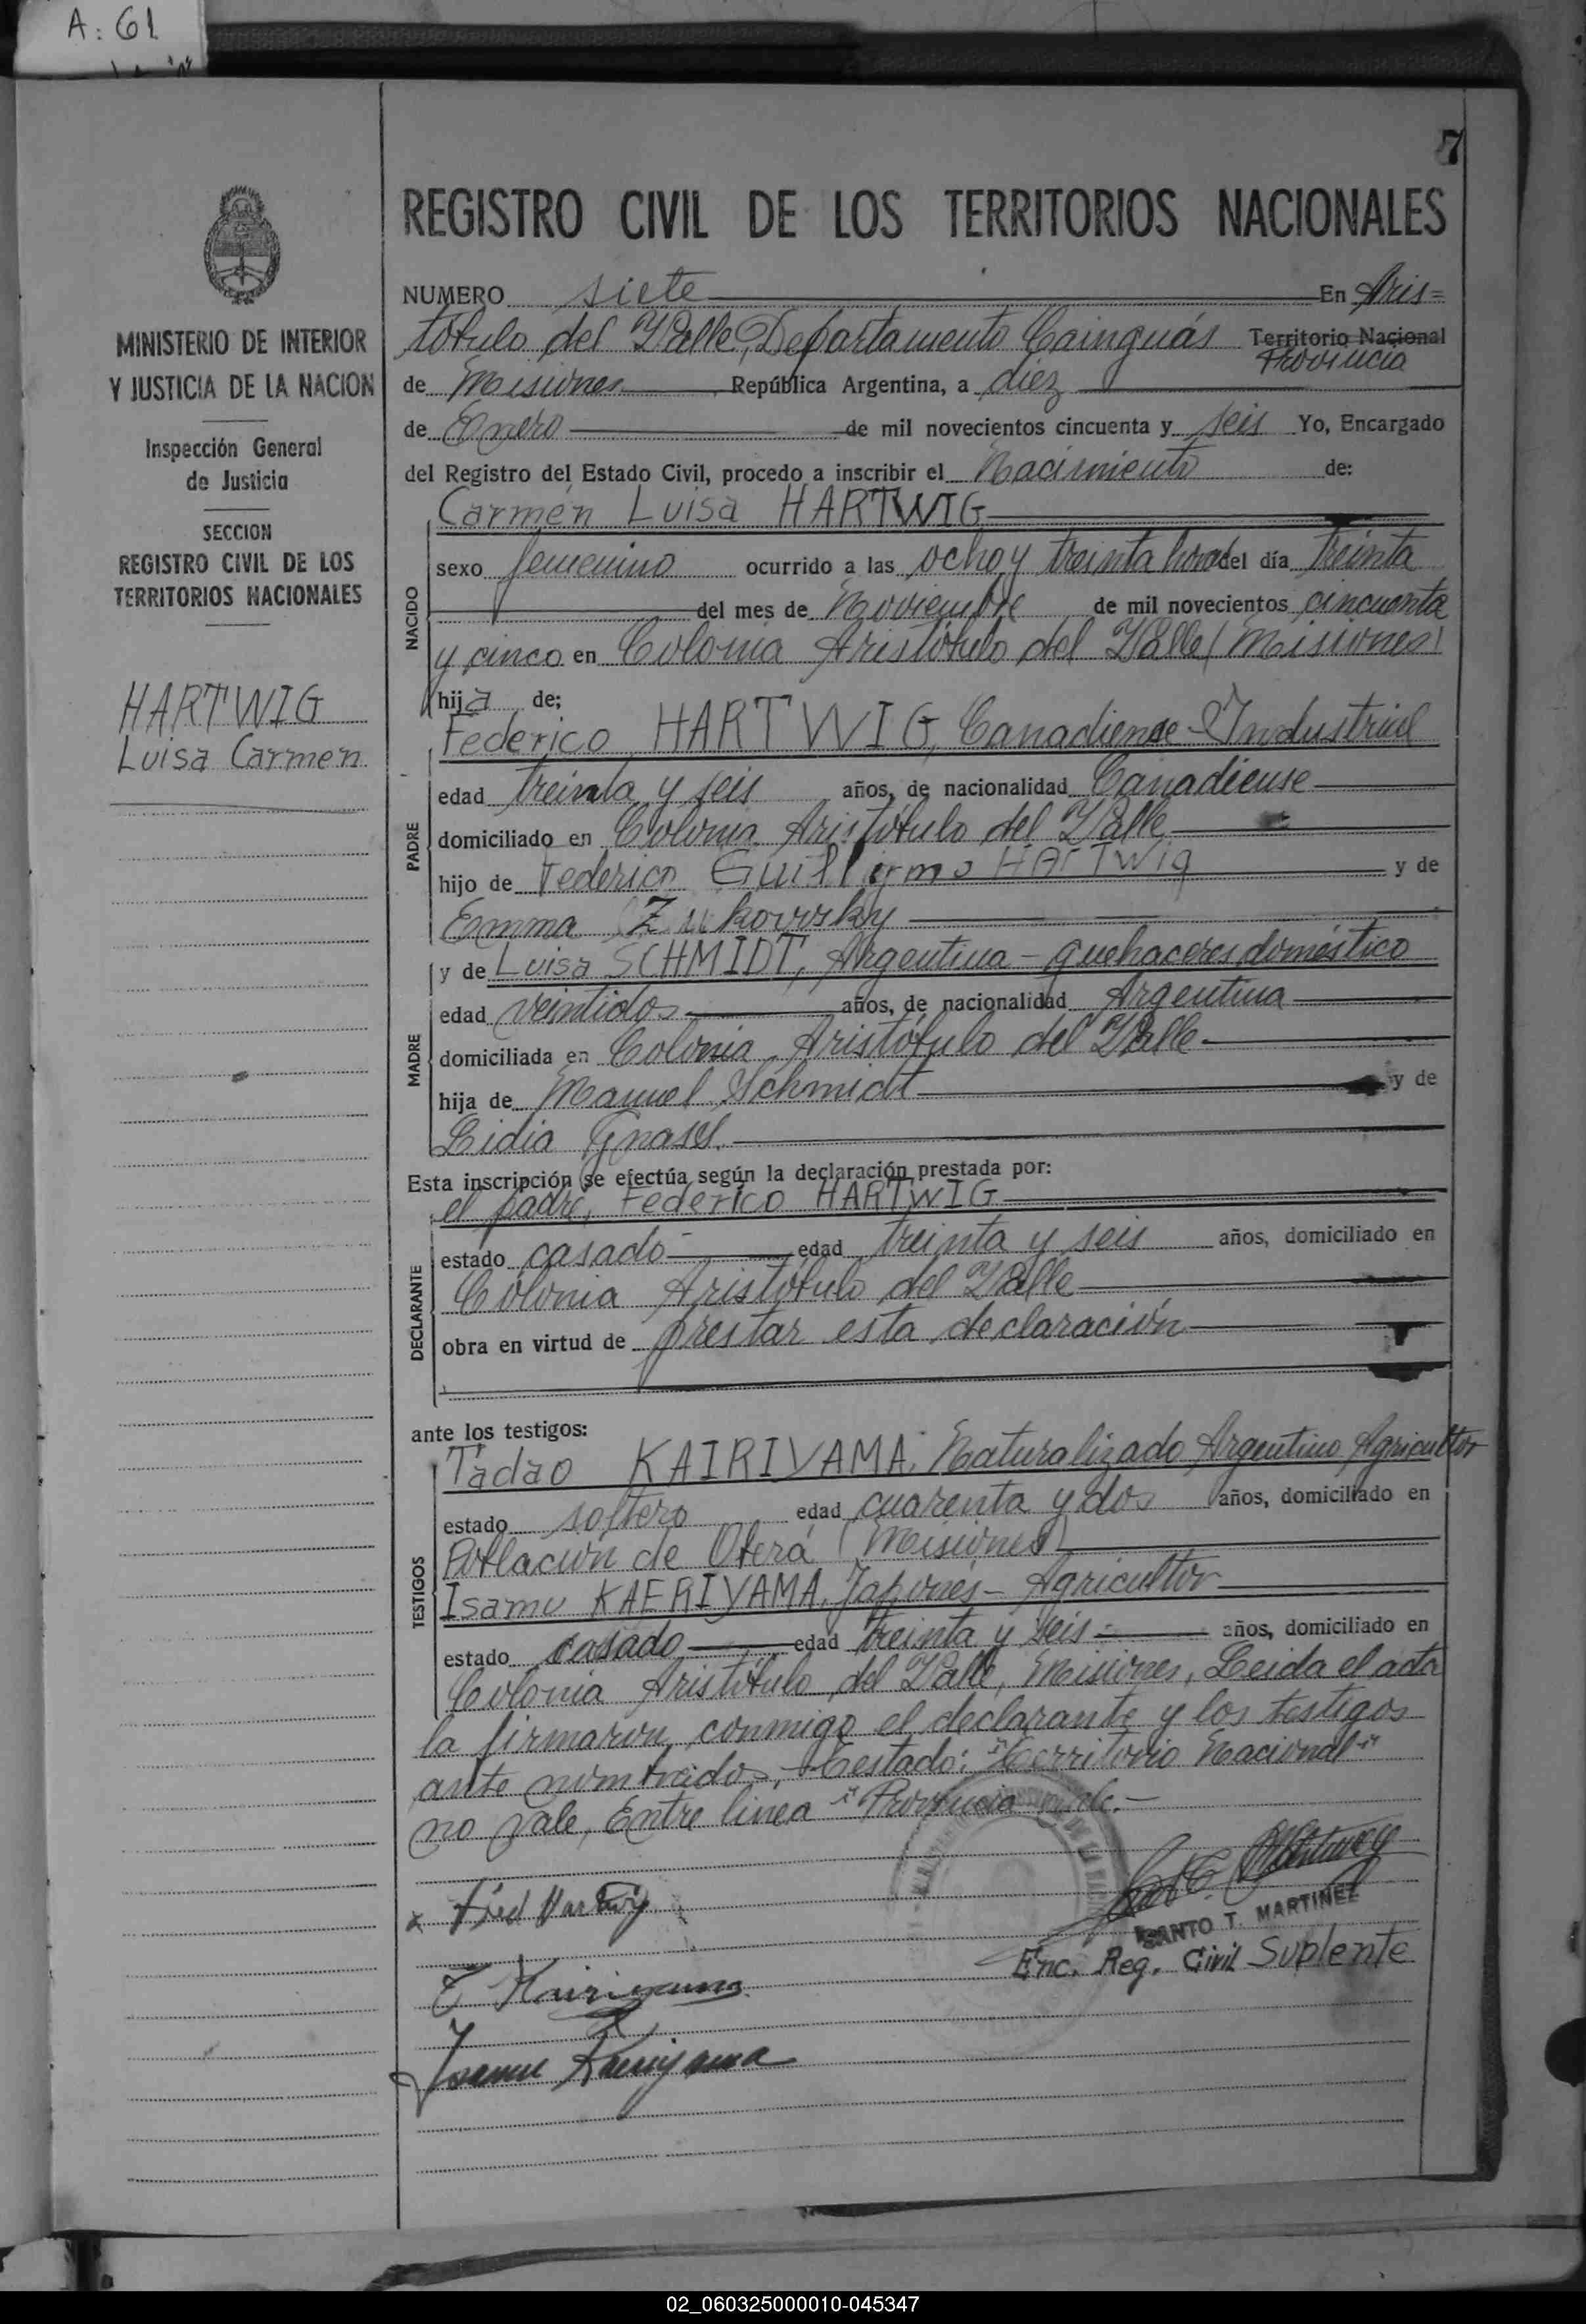 A: 61
7
REGISTRO CIVIL DE LOS TERRITORIOS NACIONALES
MINISTERIO DE INTERIOR
Y JUSTICIA DE LA NACION
Inspección General
de Justicia
SECCION
REGISTRO CIVIL DE LOS
TERRITORIOS NACIONALES
HARTWIG
Luisa Carmen
NUMERO siete En Aris=
tóbulo del Valle, Departamento Cainguás Territorio Nacional
Provincia
de Misiones, República Argentina, a diez
de Enero de mil novecientos cincuenta y seis Yo, Encargado
del Registro del Estado Civil, procedo a inscribir el Nacimiento de:
NACIDO
Carmen Luisa HARTWIG
sexo femenino ocurrido a las ocho y treinta horas del día treinta
del mes de Noviembre de mil novecientos cincuenta
y cinco en Colonia Aristóbulo del Valle (Misiones)
hija de;
PADRE
Federico HARTWIG, Canadiense - Industrial
edad treinta y seis años, de nacionalidad Canadiense
domiciliado en Colonia Aristóbulo del Valle
hijo de Federico Guillermo HARTWig y de
Emma Zukowsky
MADRE
y de Luisa SCHMIDT, Argentina - quehaceres doméstico
edad veintidos años, de nacionalidad Argentina
domiciliada en Colonia Aristóbulo del Valle
hija de Manuel Schmidt y de
Lidia
Esta inscripción se efectúa según la declaración prestada por:
DECLARANTE
el padre, Federico HARTWIG
estado casado edad treinta y seis años, domiciliado en
Colonia Aristóbulo del Valle
obra en virtud de prestar esta declaración
ante los testigos:
TESTIGOS
Tadao KAIRIYAMA, Naturalizado Argentino Agricultor
estado soltero edad cuarenta y dos años, domiciliado en
Población de Oberá (Misiones)
Isamu KAERIYAMA, Japonés - Agricultor
estado casado edad treinta y seis años, domiciliado en
Colonia Aristóbulo del Valle, Misiones, Leida el acta
la firmaron conmigo el declarante y los testigos
ante nombrados, Testado: "Territorio Nacional"
no vale, Entre linea "Provincia" vale.-
x Fred Hartwig
T Kairiyama
Isamu Kaeriyama
SANTO T. MARTINEZ
Enc. Reg. Civil Suplente
02_060325000010-045347